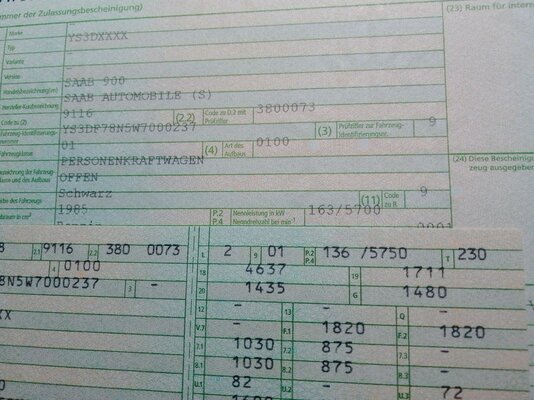 ummer der Zulassungsbescheinigung)
(23) Raum für intern
Marke YS3DXXXX
Typ
Variante -
Version
Handelsbezeichnung(en) SAAB 900
Hersteller-Kurzbezeichnung SAAB AUTOMOBILE (S)
Code zu (2) 9116 (2.2) Code zu D.2 mit Prüfziffer 3800073
Fahrzeug-Identifizierungs-nummer YS3DF78N5W7000237 (3) Prüfziffer zur Fahrzeug-Identifizierungsnr. 9
Fahrzeugklasse 01 (4) Art des Aufbaus 0100
PERSONENKRAFTWAGEN
OFFEN
Schwarz (11) Code zu R 9
1985 P.2 P.4 Nennleistung in kW Nenndrehzahl bei min⁻¹ 163/5700
(24) Diese Bescheinig
zeug ausgegeben
8 2.1 9116 2.2 380 0073 L 2 9 01 P.2 P.4 136 /5750 T 230
4 0100 18 4637 19 1711
78N5W7000237 3 - 20 1435 G 1480
12 - 13 - Q -
XX V.7 - F.1 1820 F.2 1820
7.1 1030 7.2 875 7.3 -
8.1 1030 8.2 875 8.3 -
U.1 82 U.2 - U.3 72